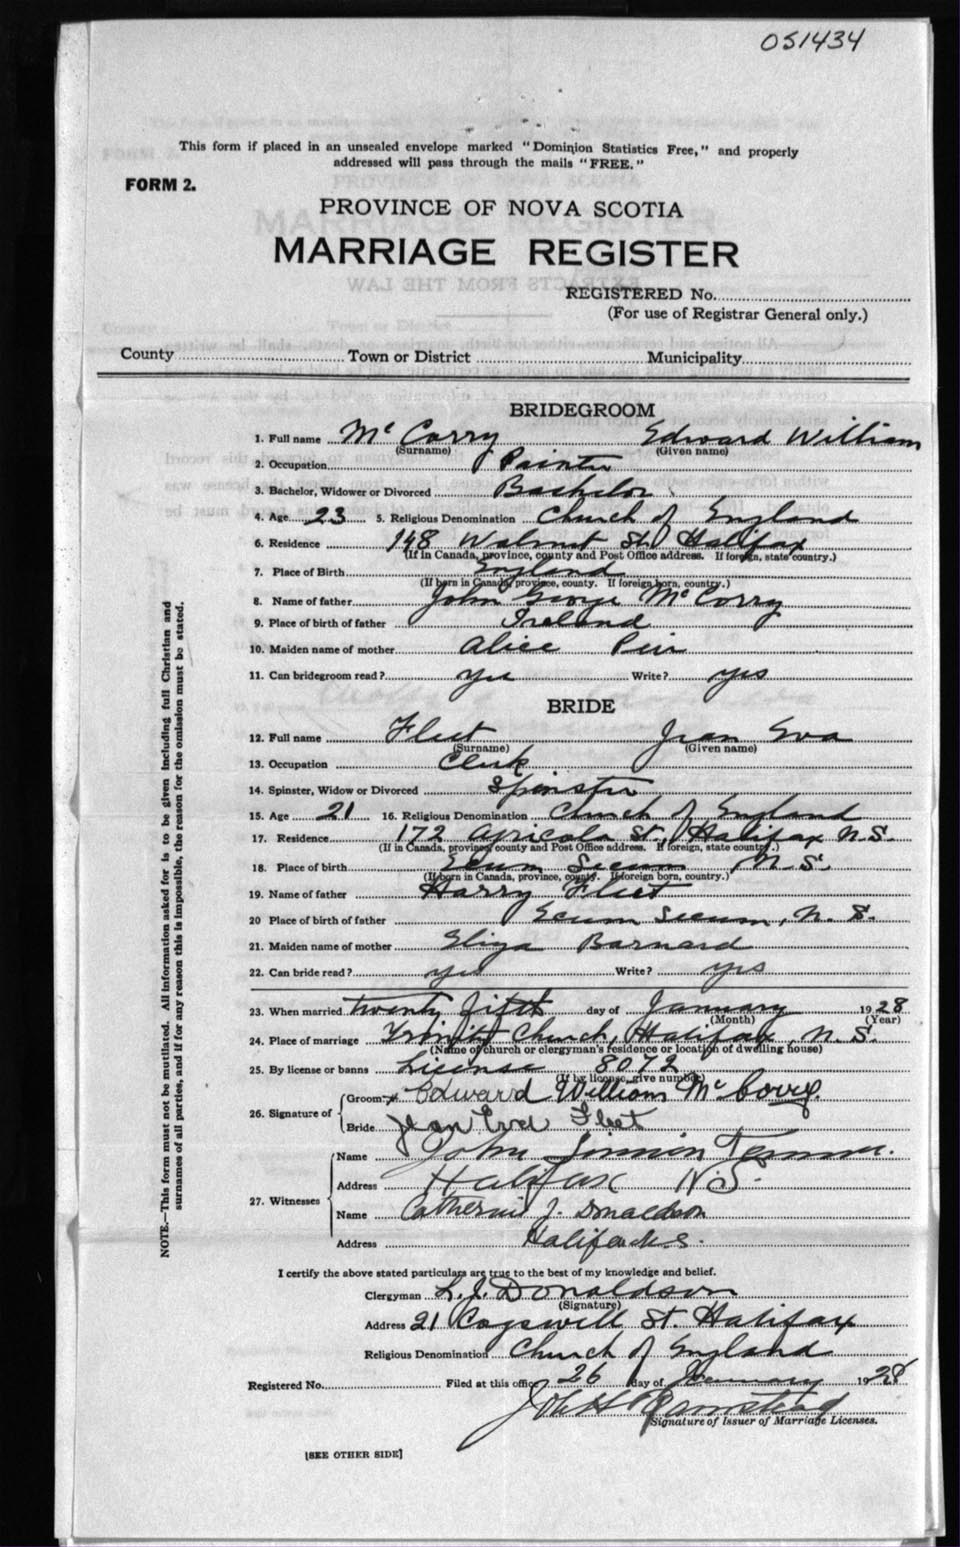 051434
This form if placed in an unsealed envelope marked "Dominion Statistics Free," and properly
addressed will pass through the mails "FREE."
FORM 2.
PROVINCE OF NOVA SCOTIA
MARRIAGE REGISTER
REGISTERED No.
(For use of Registrar General only.)
County Town or District Municipality
BRIDEGROOM
1. Full name McCorry Edward William
(Surname) (Given name)
2. Occupation Painter
3. Bachelor, Widower or Divorced Bachelor
4. Age 23 5. Religious Denomination Church of England
6. Residence 148 Walnut St. Halifax
(If in Canada, province, county and Post Office address. If foreign, state country.)
7. Place of Birth England
(If born in Canada, province, county. If foreign born, country.)
8. Name of father John George McCorry
9. Place of birth of father Ireland
10. Maiden name of mother Alice
11. Can bridegroom read? yes Write? yes
BRIDE
12. Full name Fleet Jean Eva
(Surname) (Given name)
13. Occupation Clerk
14. Spinster, Widow or Divorced Spinster
15. Age 21 16. Religious Denomination Church of England
17. Residence 172 Agricola St. Halifax N.S.
(If in Canada, province, county and Post Office address. If foreign, state country.)
18. Place of birth Ecum Secum N.S.
(If born in Canada, province, county. If foreign born, country.)
19. Name of father Harry Fleet
20 Place of birth of father Ecum Secum, N.S.
21. Maiden name of mother Eliza Barnard
22. Can bride read? yes Write? yes
23. When married twenty fifth day of January 1928
(Month) (Year)
24. Place of marriage Trinity Church, Halifax, N.S.
(Name of church or clergyman's residence or location of dwelling house)
25. By license or banns License 8072
(If by license, give number)
26. Signature of Groom x Edward William McCorry.
Bride Jean Eva Fleet
27. Witnesses
Name John
Address Halifax N.S.
Name Catherine J. Donaldson
Address Halifax N.S.
I certify the above stated particulars are true to the best of my knowledge and belief.
Clergyman L. J. Donaldson
(Signature)
Address 21 Cogswell St. Halifax
Religious Denomination Church of England
Registered No. Filed at this office 26 day of January 1928
Signature of Issuer of Marriage Licenses.
[SEE OTHER SIDE]
NOTE.—This form must not be mutilated. All information asked for is to be given including full Christian and
surnames of all parties, and if for any reason this is impossible, the reason for the omission must be stated.